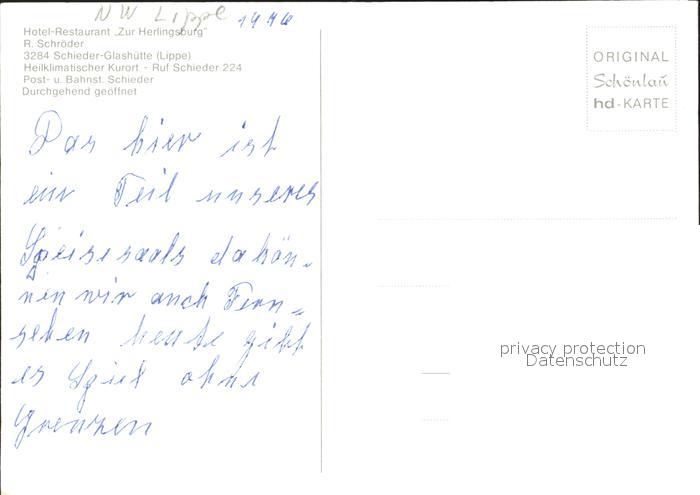 NW Lippe 1976
Hotel-Restaurant „Zur Herlingsburg"
R. Schröder
3284 Schieder-Glashütte (Lippe)
Heilklimatischer Kurort - Ruf Schieder 224
Post- u. Bahnst. Schieder
Durchgehend geöffnet
ORIGINAL
Schönlau
hd-KARTE
Das hier ist
ein Teil unseres
Speisesaals da kön-
nen wir auch Fern-
sehen heute gibt
es Spiel ohne
Grenzen
privacy protection
Datenschutz